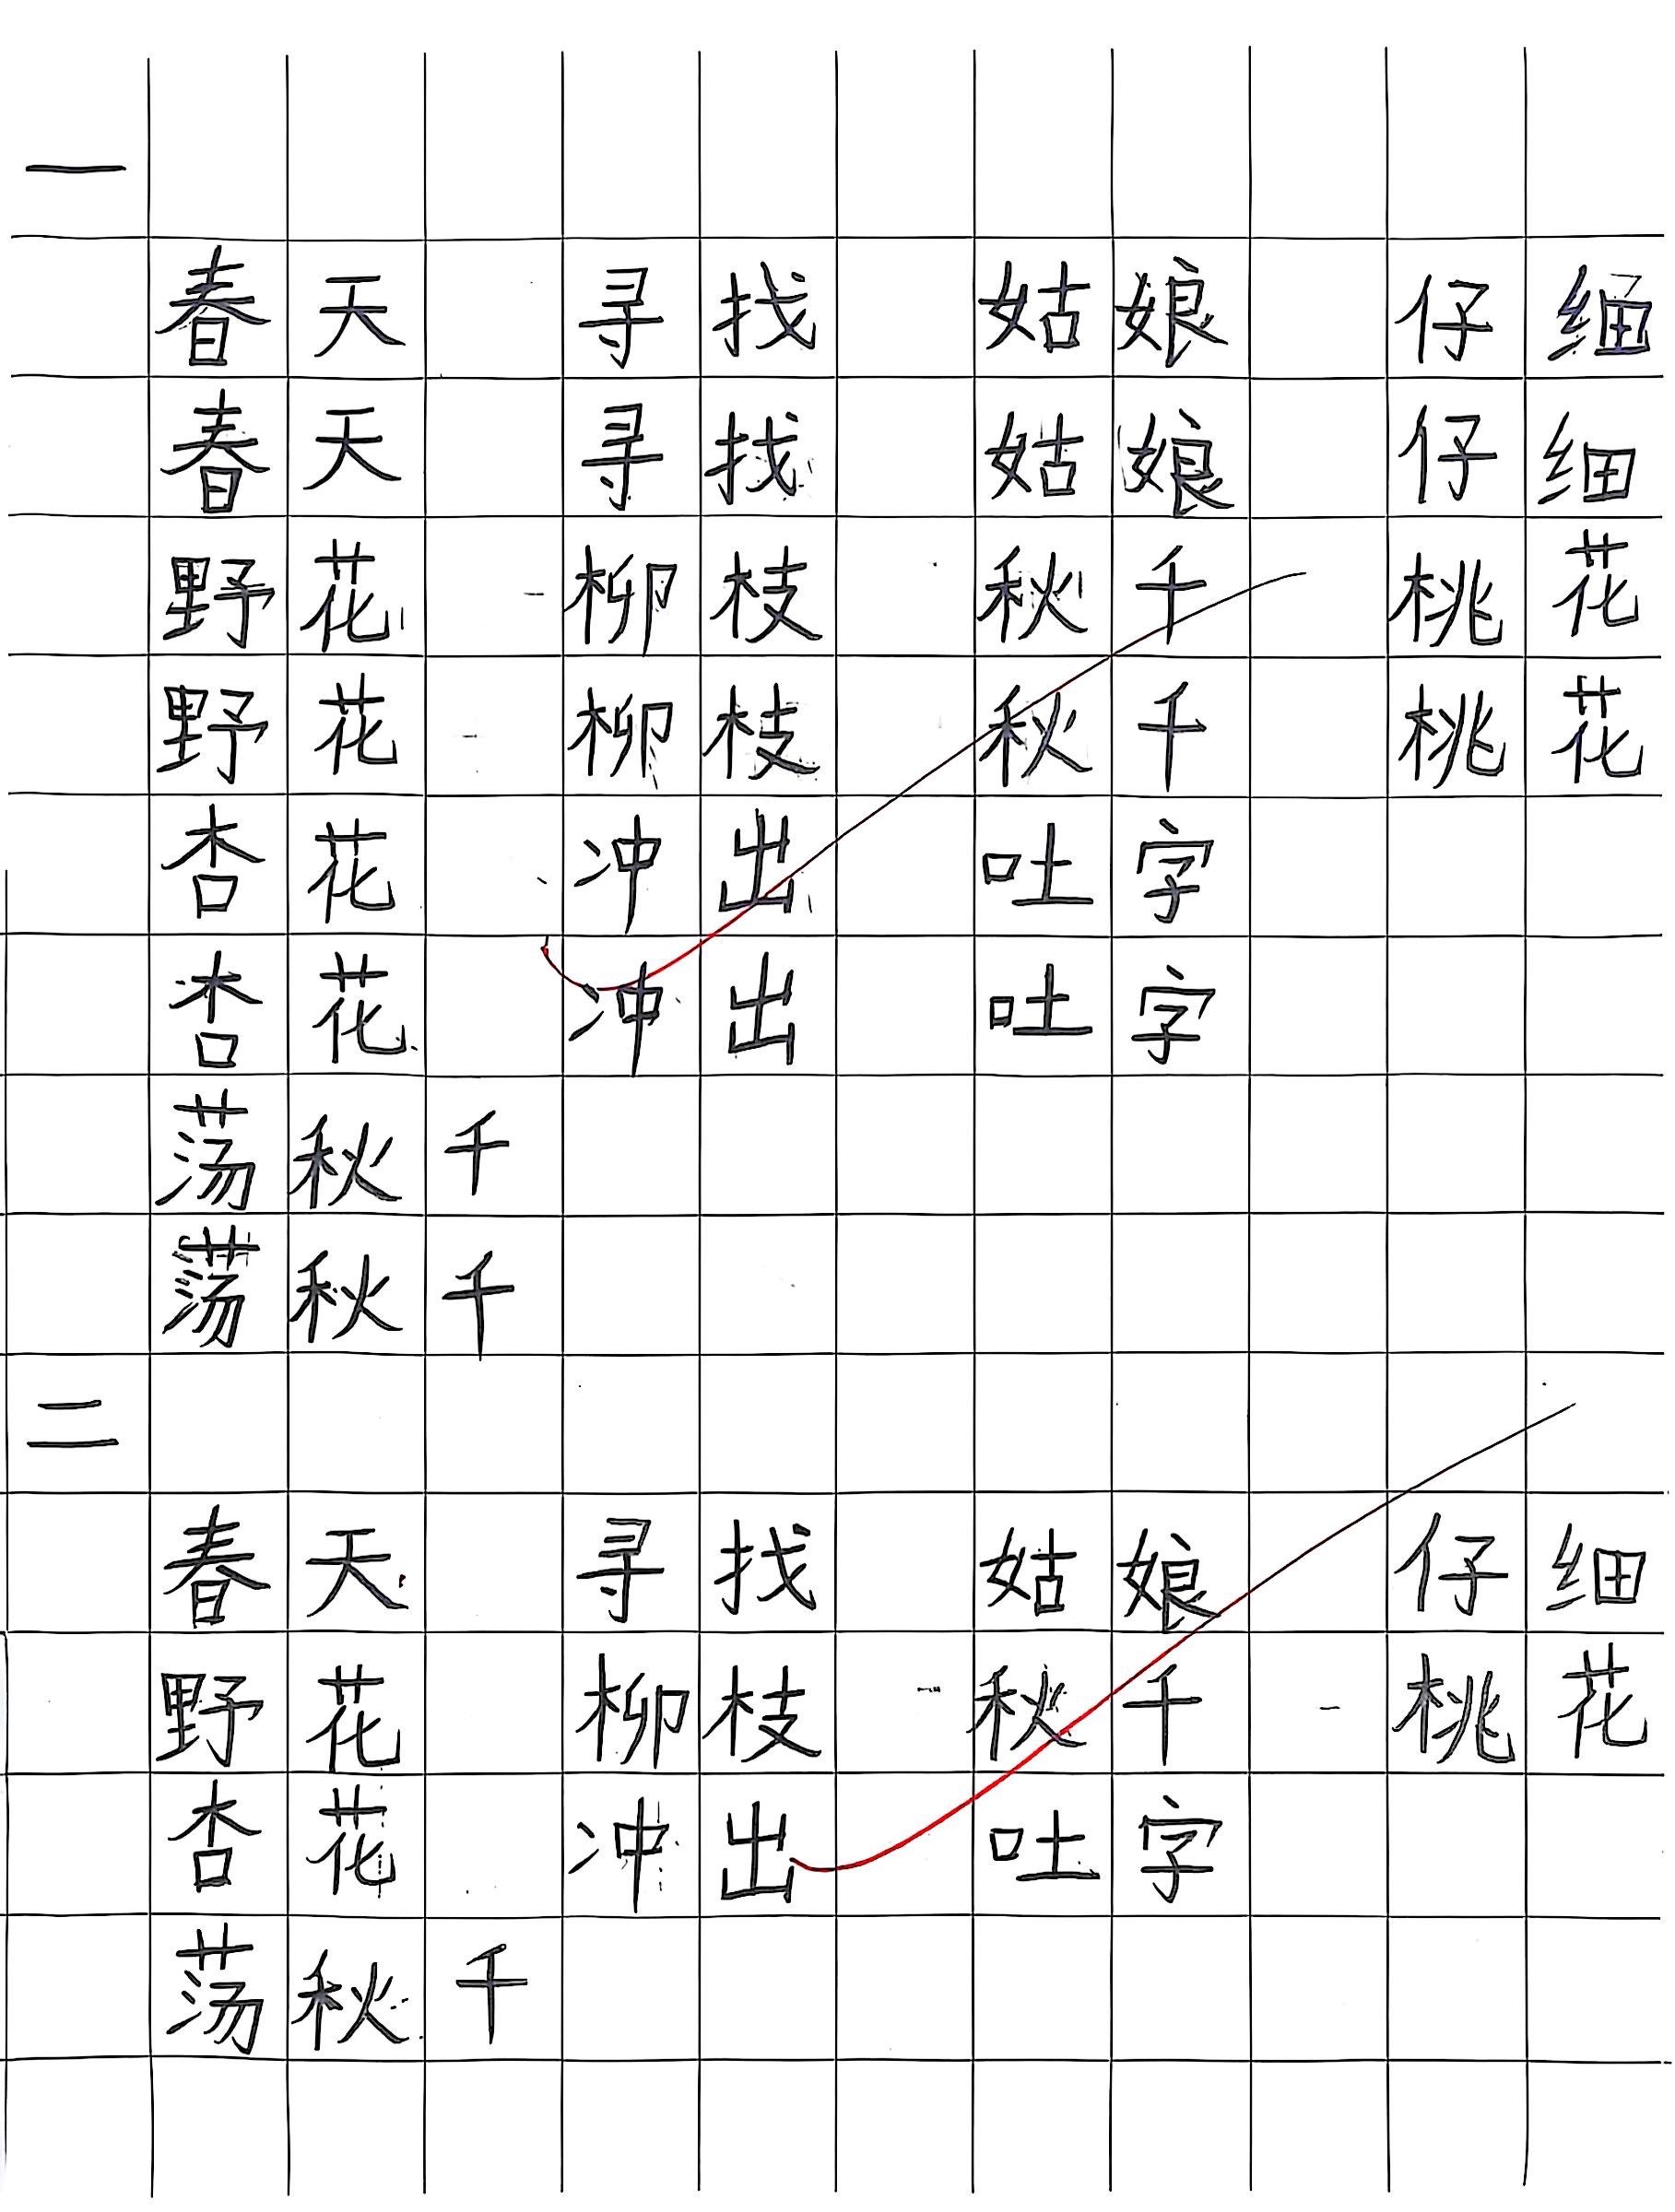 一
春天 寻找 姑娘 仔细
春天 寻找 姑娘 仔细
野花 柳枝 秋千 桃花
野花 柳枝 秋千 桃花
杏花 冲出 吐字
杏花 冲出 吐字
荡秋千
荡秋千
二
春天 寻找 姑娘 仔细
野花 柳枝 秋千 桃花
杏花 冲出 吐字
荡秋千